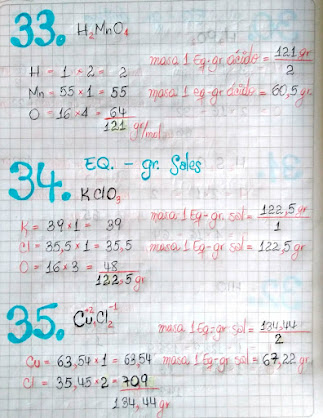 33. H₂MnO₄
masa 1 Eq-gr ácido = 121 gr / 2
H = 1 × 2 = 2
Mn = 55 × 1 = 55 masa 1 eq-gr ácido = 60,5 gr.
O = 16 × 4 = 64
121 gr/mol
EQ. - gr. Sales
34. KClO₃
K = 39 × 1 = 39 masa 1 Eq-gr sal = 122,5 gr / 1
Cl = 35,5 × 1 = 35,5 masa 1 Eq-gr sal = 122,5 gr
O = 16 × 3 = 48
122,5 gr
35. Cu⁺²Cl₂⁻¹
masa 1 Eq-gr sal = 134,44 / 2
Cu = 63,54 × 1 = 63,54 masa 1 Eq-gr sal = 67,22 gr
Cl = 35,45 × 2 = 709
134,44 gr